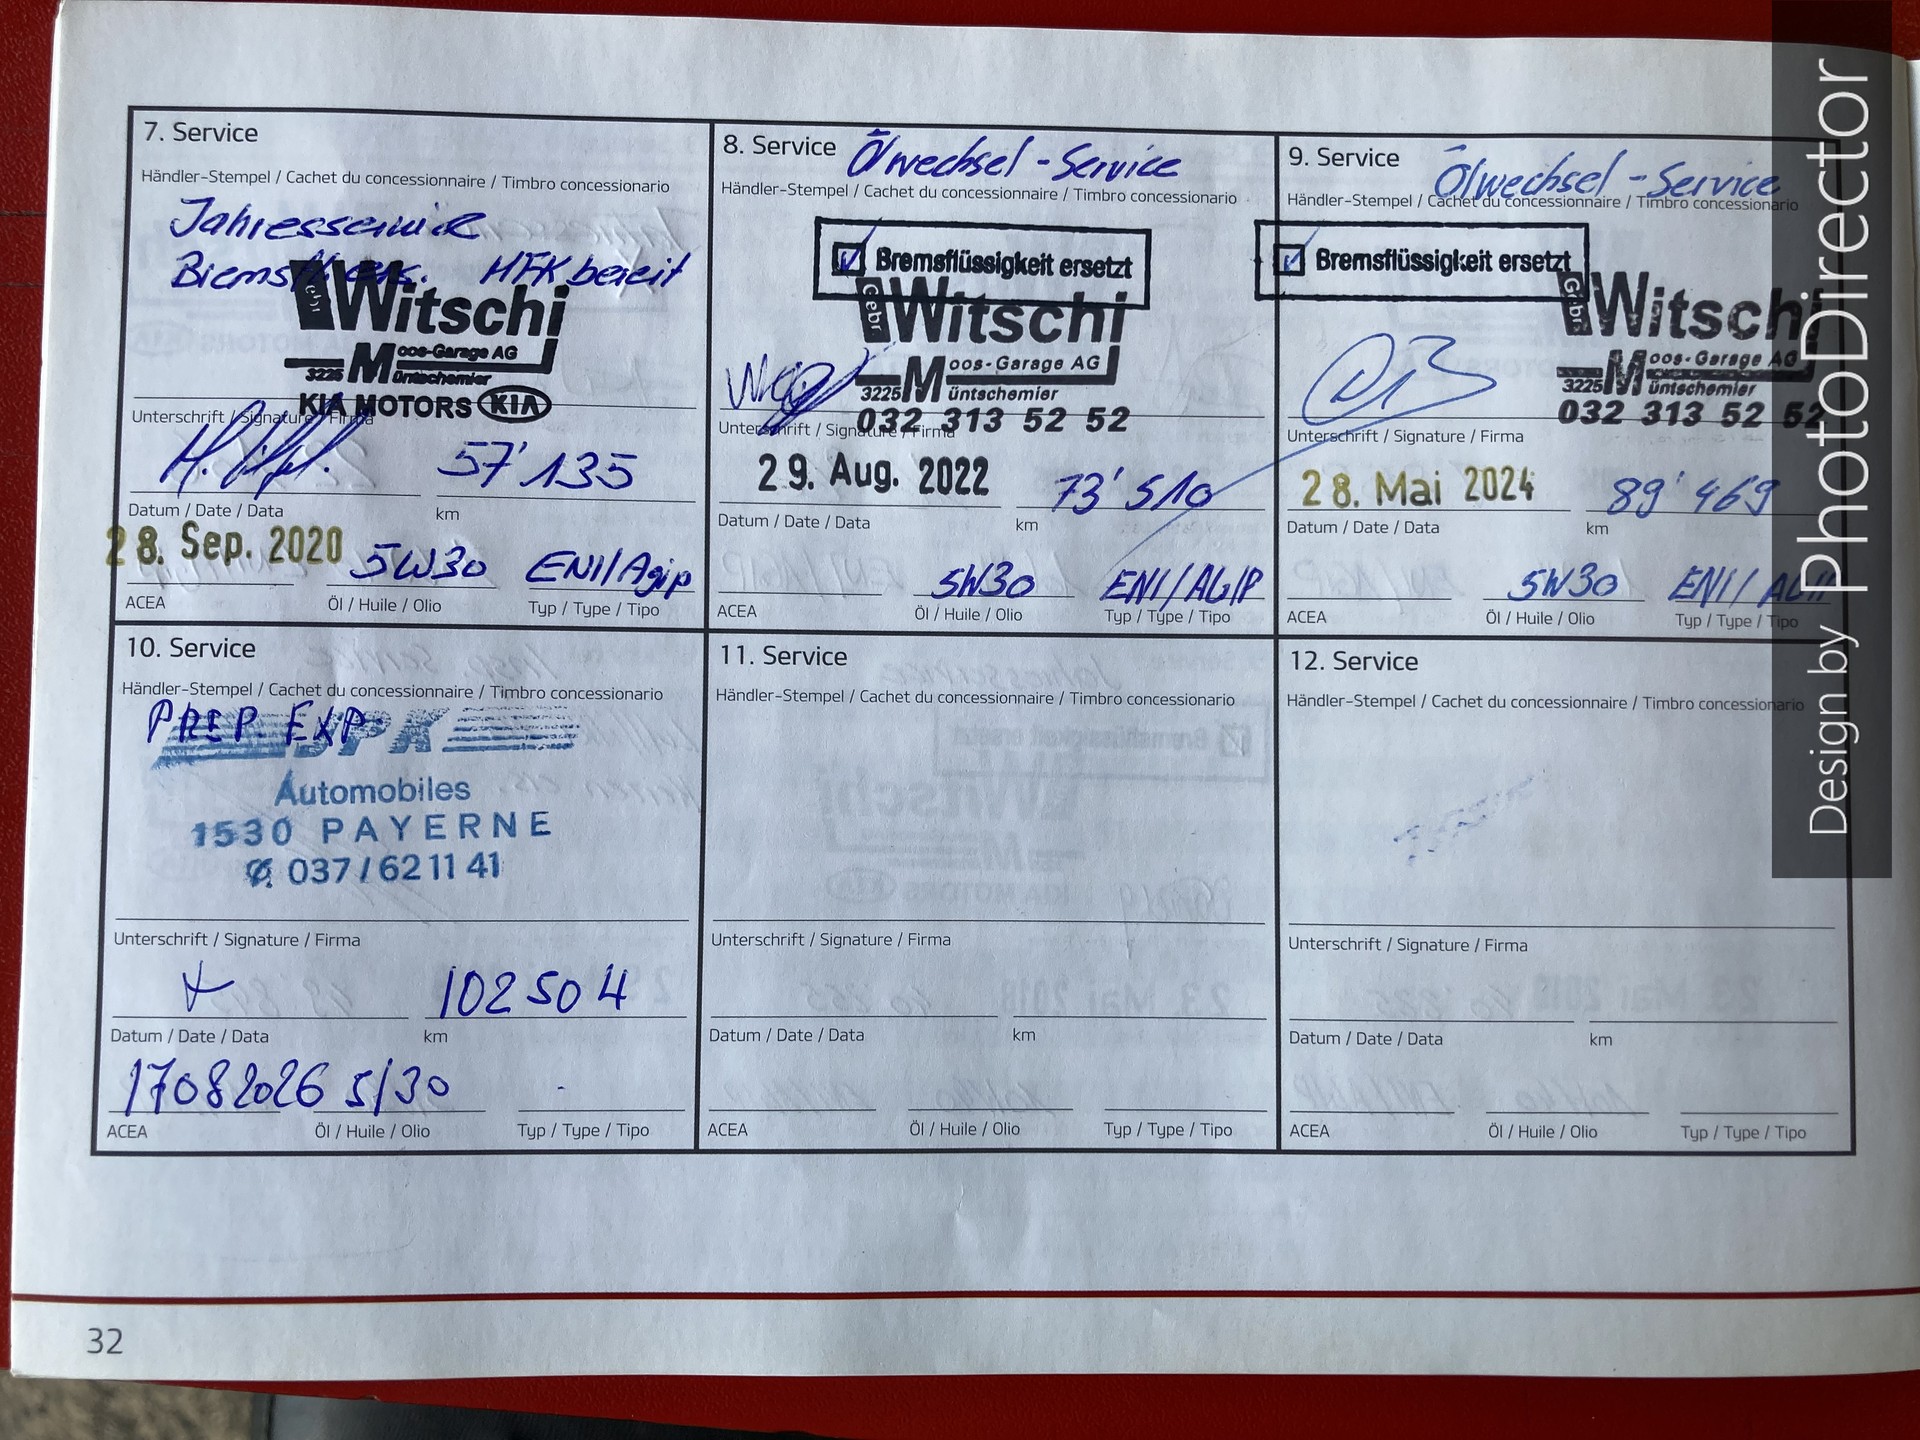 7. Service
Händler-Stempel / Cachet du concessionnaire / Timbro concessionario
Jahresservice
HFK bereit
Gebr. Witschi
Moos-Garage AG
3225 Müntschemier
KIA MOTORS KIA
Unterschrift / Signature / Firma
57'135
Datum / Date / Data
km
28. Sep. 2020
5W30
ENI/Agip
ACEA
Öl / Huile / Olio
Typ / Type / Tipo
8. Service
Ölwechsel - Service
Händler-Stempel / Cachet du concessionnaire / Timbro concessionario
Bremsflüssigkeit ersetzt
Gebr. Witschi
Moos-Garage AG
3225 Müntschemier
032 313 52 52
Unterschrift / Signature / Firma
29. Aug. 2022
73'510
Datum / Date / Data
km
5W30
ENI/AGIP
ACEA
Öl / Huile / Olio
Typ / Type / Tipo
9. Service
Ölwechsel - Service
Händler-Stempel / Cachet du concessionnaire / Timbro concessionario
Bremsflüssigkeit ersetzt
Gebr. Witschi
Moos-Garage AG
3225 Müntschemier
032 313 52 52
Unterschrift / Signature / Firma
28. Mai 2024
89'469
Datum / Date / Data
km
5W30
ENI/AGIP
ACEA
Öl / Huile / Olio
Typ / Type / Tipo
10. Service
Händler-Stempel / Cachet du concessionnaire / Timbro concessionario
PREP. EXP
SPK
Automobiles
1530 PAYERNE
037/62 11 41
Unterschrift / Signature / Firma
102504
Datum / Date / Data
km
17082026
5/30
-
ACEA
Öl / Huile / Olio
Typ / Type / Tipo
11. Service
Händler-Stempel / Cachet du concessionnaire / Timbro concessionario
Unterschrift / Signature / Firma
Datum / Date / Data
km
ACEA
Öl / Huile / Olio
Typ / Type / Tipo
12. Service
Händler-Stempel / Cachet du concessionnaire / Timbro concessionario
Unterschrift / Signature / Firma
Datum / Date / Data
km
ACEA
Öl / Huile / Olio
Typ / Type / Tipo
32
Design by PhotoDirector